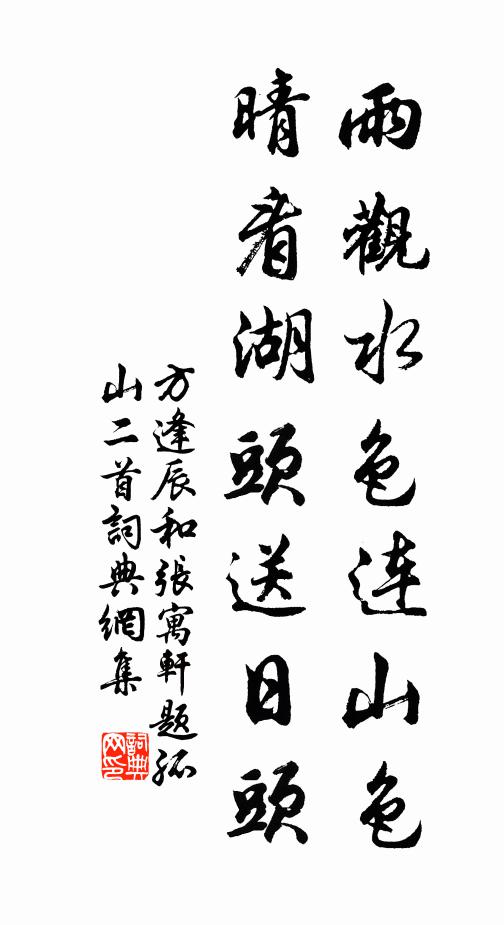 雨觀水色連山色
晴看湖頭送日頭
方逢辰和張寓軒題孤
山二首詞典網集
詞典網印